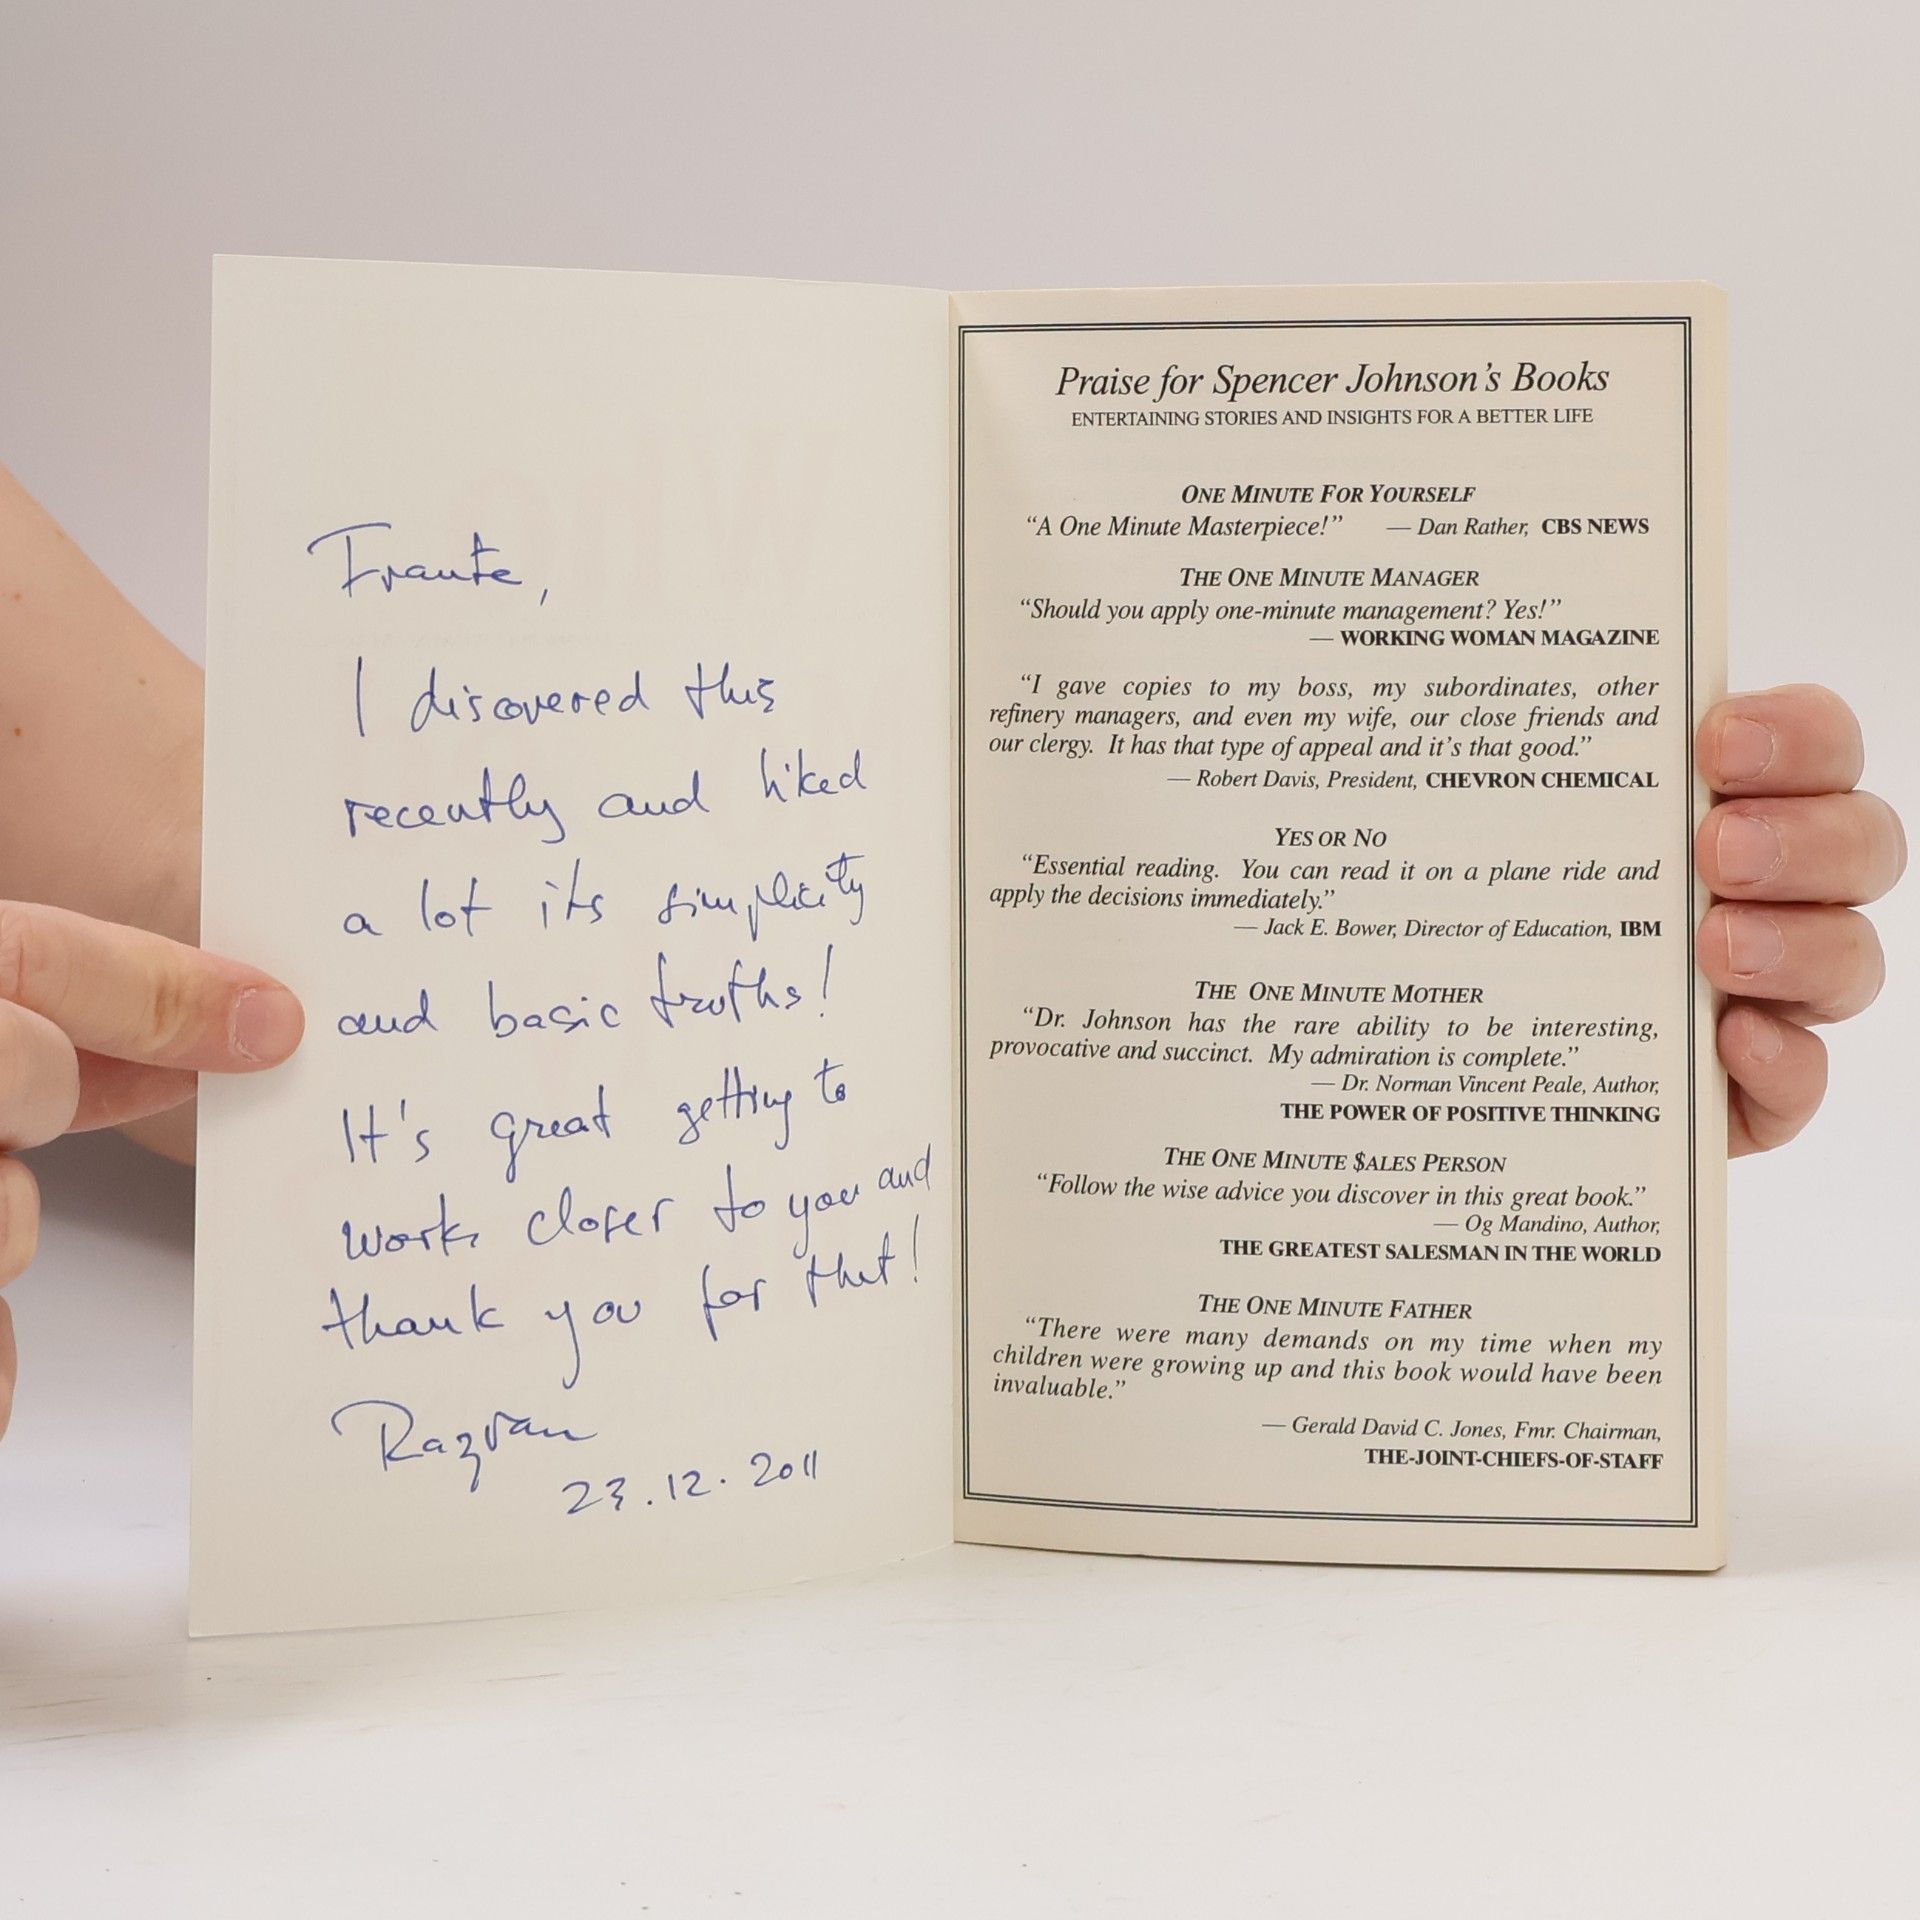 Frante,
I discovered this
recently and liked
a lot its simplicity
and basic truths!
It's great getting to
work closer to you and
thank you for that!
Razvan
23.12.2011
Praise for Spencer Johnson's Books
ENTERTAINING STORIES AND INSIGHTS FOR A BETTER LIFE
ONE MINUTE FOR YOURSELF
“A One Minute Masterpiece!” — Dan Rather, CBS NEWS
THE ONE MINUTE MANAGER
“Should you apply one-minute management? Yes!”
— WORKING WOMAN MAGAZINE
“I gave copies to my boss, my subordinates, other
refinery managers, and even my wife, our close friends and
our clergy. It has that type of appeal and it's that good.”
— Robert Davis, President, CHEVRON CHEMICAL
YES OR NO
“Essential reading. You can read it on a plane ride and
apply the decisions immediately.”
— Jack E. Bower, Director of Education, IBM
THE ONE MINUTE MOTHER
“Dr. Johnson has the rare ability to be interesting,
provocative and succinct. My admiration is complete.”
— Dr. Norman Vincent Peale, Author,
THE POWER OF POSITIVE THINKING
THE ONE MINUTE $ALES PERSON
“Follow the wise advice you discover in this great book.”
— Og Mandino, Author,
THE GREATEST SALESMAN IN THE WORLD
THE ONE MINUTE FATHER
“There were many demands on my time when my
children were growing up and this book would have been
invaluable.”
— Gerald David C. Jones, Fmr. Chairman,
THE-JOINT-CHIEFS-OF-STAFF